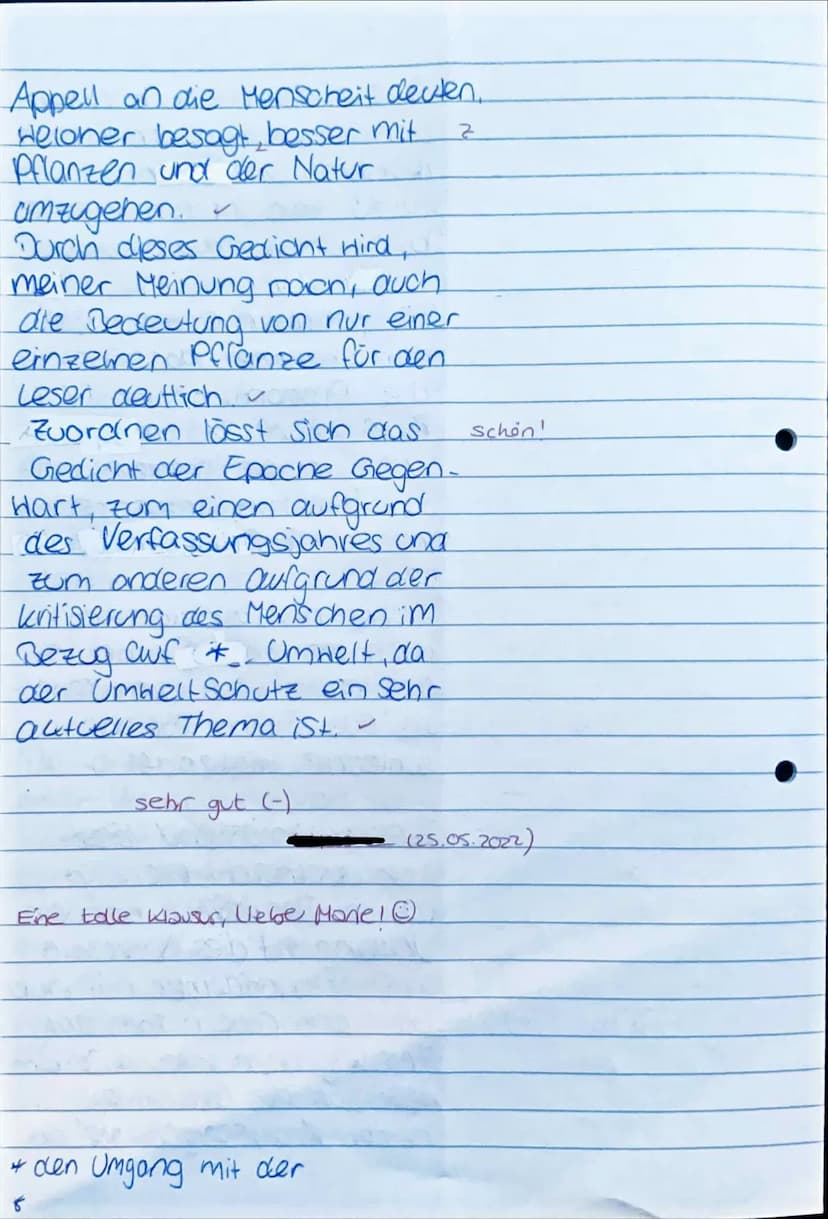 Appell an die Menscheit deuten.
welcher besagt, besser mit z
Pflanzen und der Natur
umzugehen. ✓
Durch dieses Gedicht wird,
meiner Meinung nach, auch
die Bedeutung von nur einer
einzelnen Pflanze für den
Leser deutlich. ✓
Zuordnen lässt sich das schön!
Gedicht der Epoche Gegen-
wart, zum einen aufgrund
des Verfassungsjahres und
zum anderen aufgrund der
kritisierung des Menschen im
Bezug auf * Umwelt, da
der Umweltschutz ein sehr
aktuelles Thema ist. ✓
sehr gut (-)
(25.05.2022)
Eine tolle Klausur, liebe Marie! ☺
* den Umgang mit der